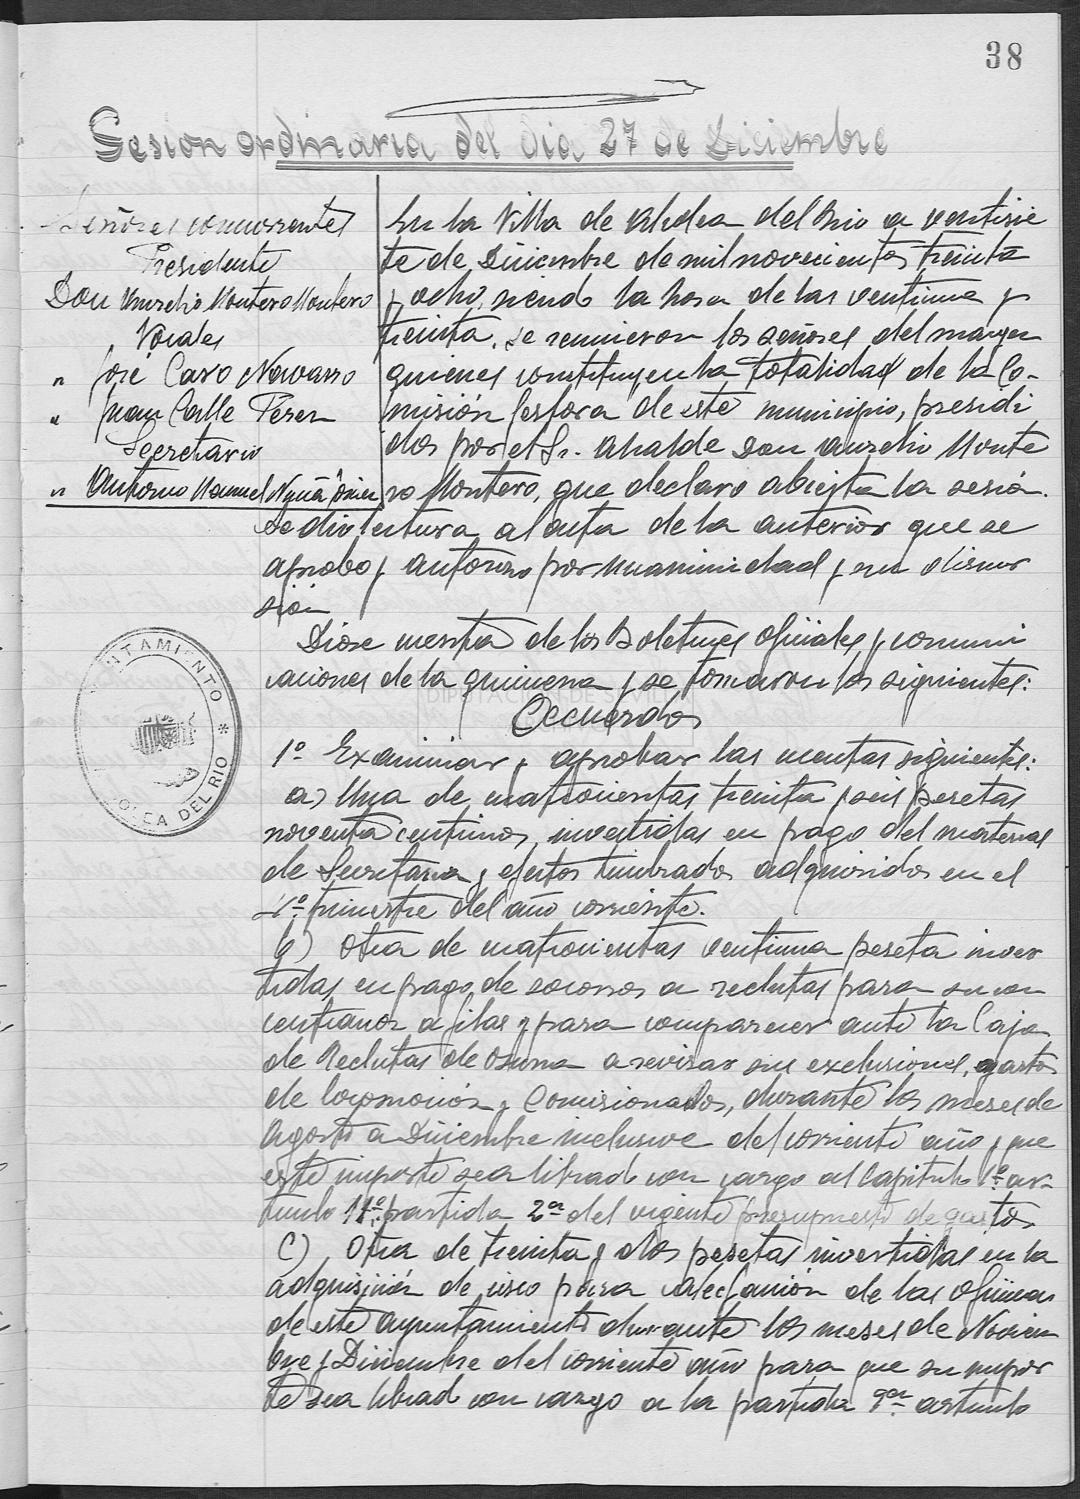 38
Sesion ordinaria del dia 27 de Diciembre
Señores concurrentes
Presidente
Don Aurelio Montero Montero
Vocales
" José Caro Navarro
" Juan Calle Pérez
Secretario
" Antonio Manuel
En la Villa de Aldea del Rio a ventisie
te de Diciembre de mil novecientos treinta
y ocho, siendo la hora de las ventiuna y
treinta, se reunieron los señores del margen
quienes constituyen la totalidad de la Co-
misión Gestora de este municipio, presidi
dos por el Sr. Alcalde Don Aurelio Monte
ro Montero, que declaro abierta la sesión.
Se dio lectura al acta de la anterior que se
aprobo y autorizo por unanimidad y sin discur
sión
Diose cuenta de los Boletines Oficiales y comuni
caciones de la quincena y se tomaron los siguientes:
Acuerdos
1º Examinar y aprobar las cuentas siguientes:
a) Una de cuatrocientas treinta y seis pesetas
noventa centimos, invertidas en pago del material
de Secretaria y efectos timbrados adquiridos en el
4º trimestre del año corriente.
b) Otra de cuatrocientas ventiuna peseta inver
tidas en pago de socorros a reclutas para su con
centracion a filas y para comparecer ante la Caja
de Reclutas de Osuna a revisar sus exclusiones, gastos
de locomoción y Comisionados, durante los meses de
Agosto a Diciembre inclusive del corriente año y que
este importe sea librado con cargo al Capitulo 1º ar-
ticulo 11º partida 2ª del vigente presupuesto de gastos
C) Otra de treinta y dos pesetas invertidas en la
adquisición de cisco para calefacción de las oficinas
de este ayuntamiento durante los meses de Noviem
bre y Diciembre del corriente año para que su impor
te sea librado con cargo a la partida 9ª articulo
AYUNTAMIENTO * DEL RIO